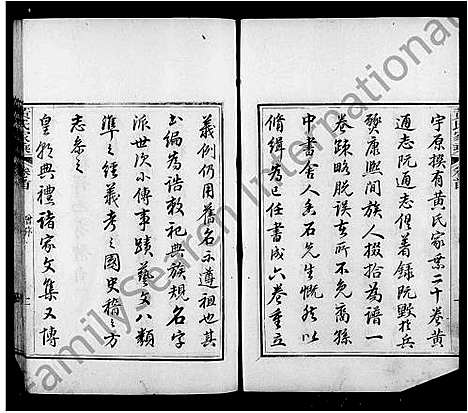 宇原撰有黃氏家乘二十卷黃
通志阮通志俱著錄阮燬於兵
燹康熙間族人掇拾為譜一
卷疎略脫誤在所不免高孫
中書舍人香石先生慨然以
脩緝為己任書成六卷重立
義例仍用舊名示遵祖也其
書編為誥敕祀典族規名字
派世次小傳事蹟藝文八類
準之經義考之國史稽之方
志參之
皇朝典禮諸家文集又博
黃氏家乘
卷首
FamilySearch International